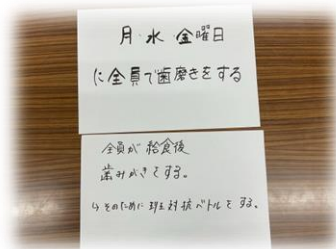 月・水・金曜日
に全員で歯磨きをする
全員が給食後
歯みがきをする。
↳そのために班対抗バトルをする。